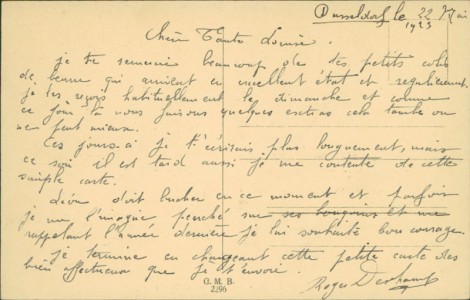 Dusseldorf le 22 Mai
1923
Chère Tante Louise.
je te remercie beaucoup de tes petits colis
de beurre qui arrivent en excellent état et regulièrement.
je les reçois habituellement le dimanche et comme
ce jour là nous faisons quelques extras cela tombe on
ne peut mieux.
Ces jours-ci je t'écrirais plus longuement, mais
ce soir il est tard aussi je me contente de cette
simple carte.
doit bucher en ce moment et parfois
je me l'imagine penché sur ses bouquins et me
rappelant l'année dernière je lui souhaite bon courage.
je termine en chargeant cette petite carte des
bien affectueux que je t'envoie.
Roger
G. M. B.
2296